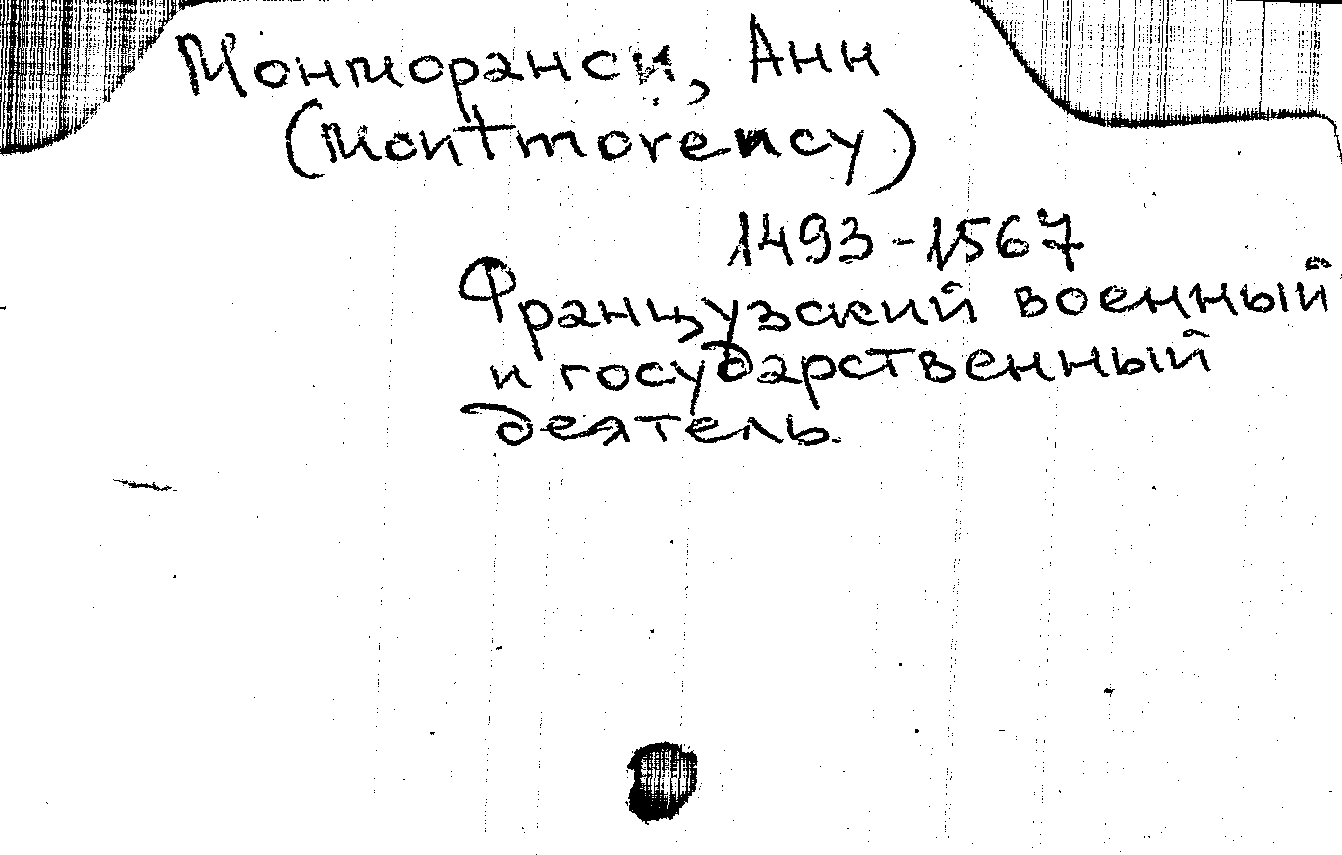 Монморанси, Анн
(Montmorency)
1493-1567
Французский военный
и государственный
деятель.